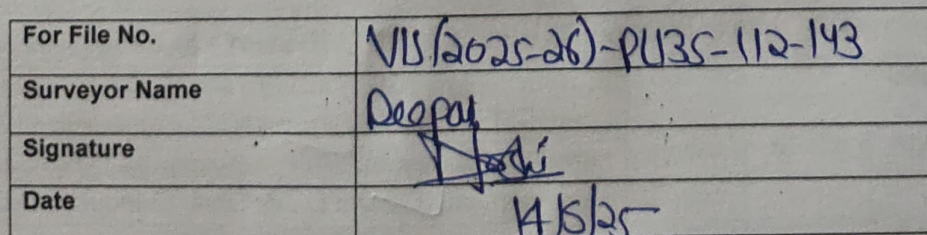 For File No. VIS(2025-26)-PL135-112-143
Surveyor Name Deepak
Signature Joshi
Date 14/5/25